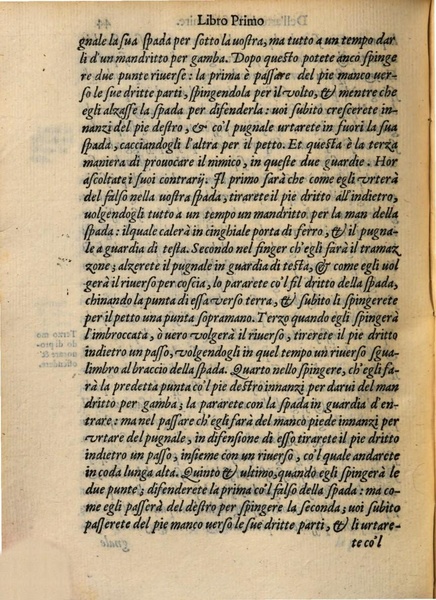 Libro Primo
gnale la sua spada per sotto la vostra, ma tutto a un tempo dar
li d'un mandritto per gamba. Dopo questo potete anco spinge
re due punte riverse: la prima è passare del pie manco ver-
so le sue dritte parti, spingendola per il volto, & mentre che
egli alzasse la spada per difenderla: voi subito crescerete in-
nanzi del pie destro, & co'l pugnale urtarete in fuori la sua
spada, cacciandogli l'altra per il petto. Et questa è la terza
maniera di provocare il nimico, in queste due guardie. Hor
ascoltate i suoi contrarij. Il primo sarà che come egli vrterà
del falso nella vostra spada, tirarete il pie dritto all'indietro,
volgendogli tutto a un tempo un mandritto per la man della
spada: il quale calerà in cinghiale porta di ferro, & il pugna-
le a guardia di testa. Secondo nel finger ch'egli farà il tramaz
zone; alzerete il pugnale in guardia di testa, & come egli vol
gerà il riverso per coscia, lo pararete co'l fil dritto della spada,
chinando la punta di essa verso terra, & subito li spingerete
per il petto una punta sopramano. Terzo quando egli spingerà
l'imbroccata, ò vero volgerà il riverso, tirerete il pie dritto
indietro un passo, volgendogli in quel tempo un riverso sgua-
limbro al braccio della spada. Quarto nello spingere, ch'egli fa-
rà la predetta punta co'l pie destro innanzi per darui del man
dritto per gamba; la pararete con la spada in guardia d'en-
trare: ma nel passare ch'egli farà del manco piede innanzi per
vrtare del pugnale, in difensione di esso tirarete il pie dritto
indietro un passo, insieme con un riverso, co'l quale andarete
in coda lunga alta. Quinto & ultimo, quando egli spingerà le
due punte; difenderete la prima co'l falso della spada: ma co-
me egli passerà del destro per spingere la seconda; voi subito
passerete del pie manco verso le sue dritte parti, & li urtare-
te co'l